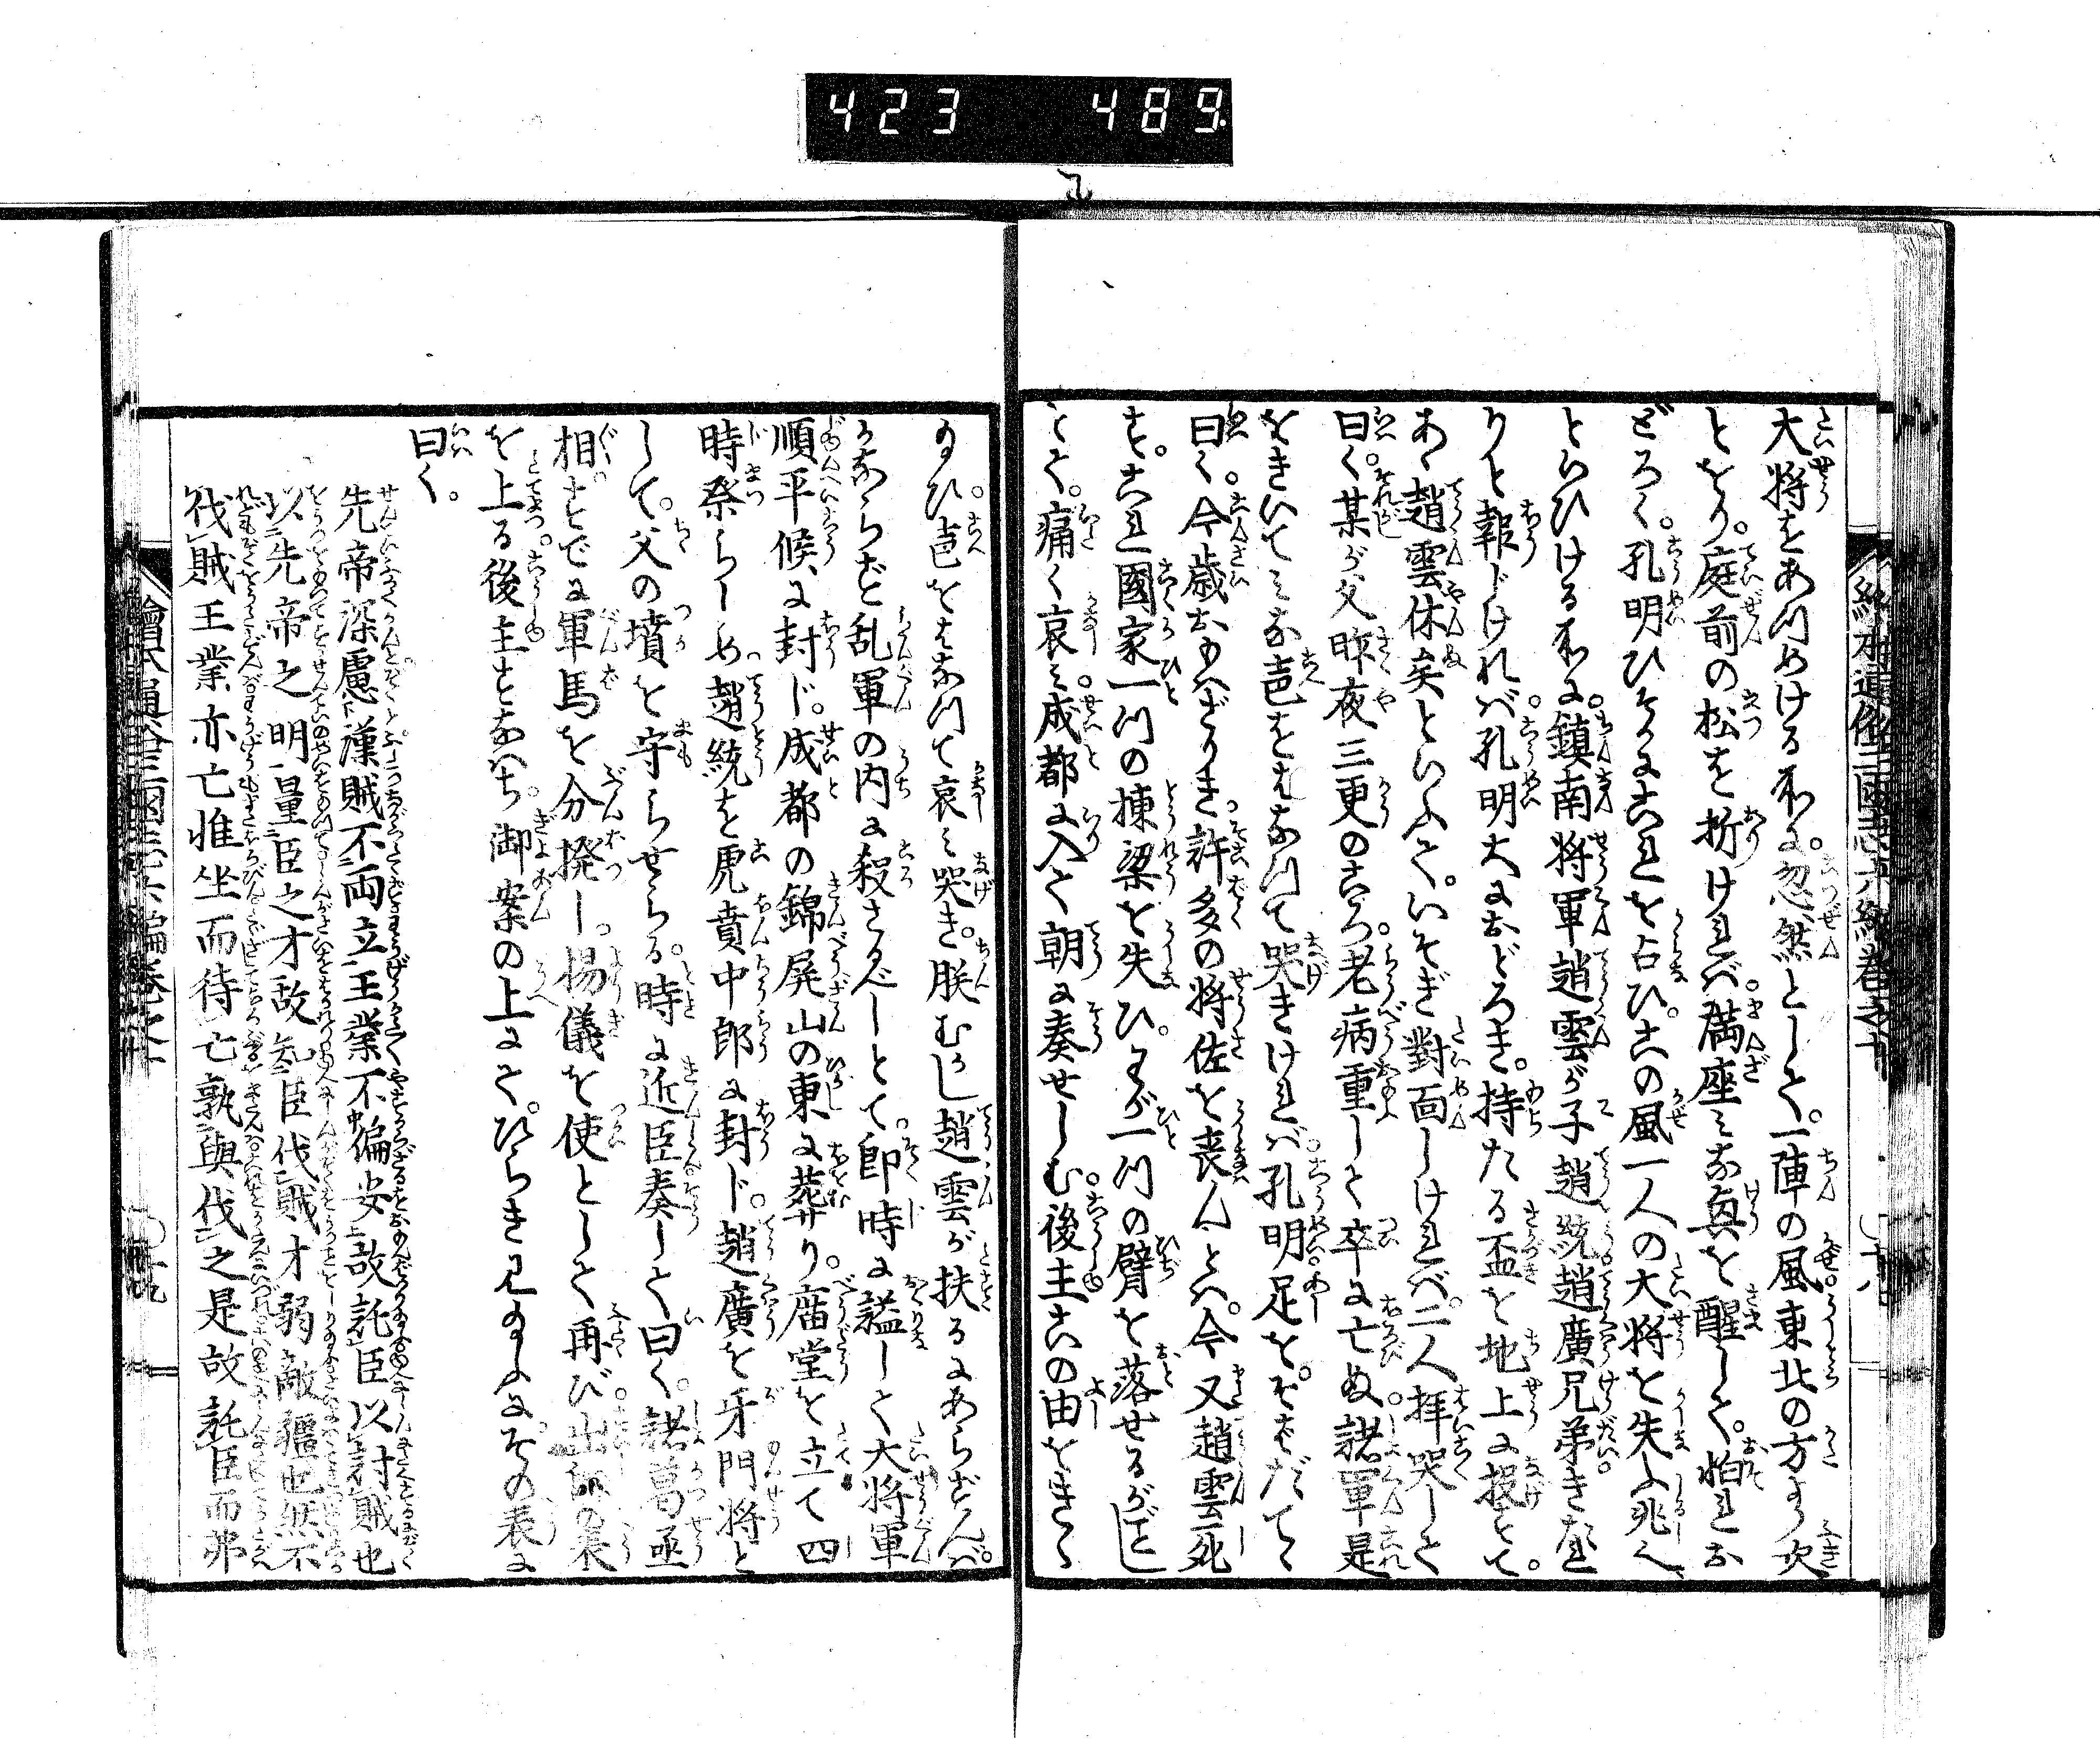 423 489.
大将をあつめける所に。忽然として。一陣の風東北の方より吹
とをり。庭前の松を折ければ。満座みな興を醒して。怕れお
どろく。孔明ひそかにこれを占ひ。この風一人の大将を失ふ兆へ
とらひける所に。鎮南将軍趙雲が子趙統趙廣兄弟きた
りと報じければ。孔明大におどろき。持たる盃を地上に投すて。
あゝ趙雲休矣といふて。いそぎ對面しければ。二人拝哭して
曰く。某が父昨夜三更のころ。老病重して卒に亡ぬ。諸軍是
をきいてみな声をはなつて哭きければ。孔明足を。そばだてゝ
曰く。今歳おもへざりき許多の将佐を喪んとハ。今又趙雲死
す。これ國家一つの棟梁を失ひ。わが一つの臂を落せるがごとし
とて。痛く哀み。成都に入て朝に奏せしむ。後主この由をきゝ
給ひ。声をはなつて哀み哭き。朕むかし趙雲が扶るにあらずんば。
かならず乱軍の内に殺さるべしとて。即時に諡して大将軍
順平候に封じ。成都の錦屏山の東に葬り。廟堂を立て四
時祭らしめ趙統を虎賁中郎に封じ。趙廣を牙門将と
して。父の墳を守らせらる。時に近臣奏して曰く。諸葛亟
相すでに軍馬を分撥し。揚儀を使として再び出師の表
を上る後主すなハち。御案の上にて。ひらき見給ふに。その表に
曰く。
先帝深慮漢賊不両立王業不偏安故託臣以討賊也
以先帝之明量臣之才故知臣伐賊才弱敵彊也然不
伐賊王業亦亡惟坐而待亡孰與伐之是故託臣而弗